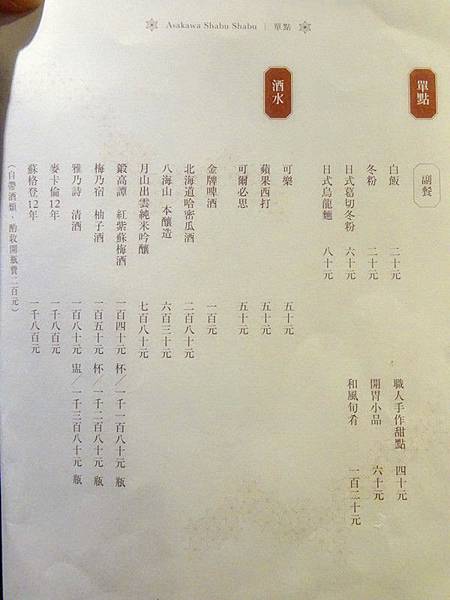 Asakawa Shabu Shabu | 單點
單點
副餐
白飯 二十元
冬粉 二十元
日式葛切冬粉 六十元
日式烏龍麵 八十元
職人手作甜點 四十元
開胃小品 六十元
和風旬肴 一百二十元
酒水
可樂 五十元
蘋果西打 五十元
可爾必思 五十元
金牌啤酒 一百元
北海道哈密瓜酒 二百八十元
八海山 本釀造 六百三十元
月山出雲純米吟釀 七百八十元
鍛高譚 紅紫蘇梅酒 一百四十元 杯／一千一百八十元 瓶
梅乃宿 柚子酒 一百五十元 杯／一千二百八十元 瓶
雅乃詩 清酒 一百八十元 盅／一千三百八十元 瓶
麥卡倫12年 一千八百元
蘇格登12年 一千八百元
（自帶酒類，酌收開瓶費二百元）